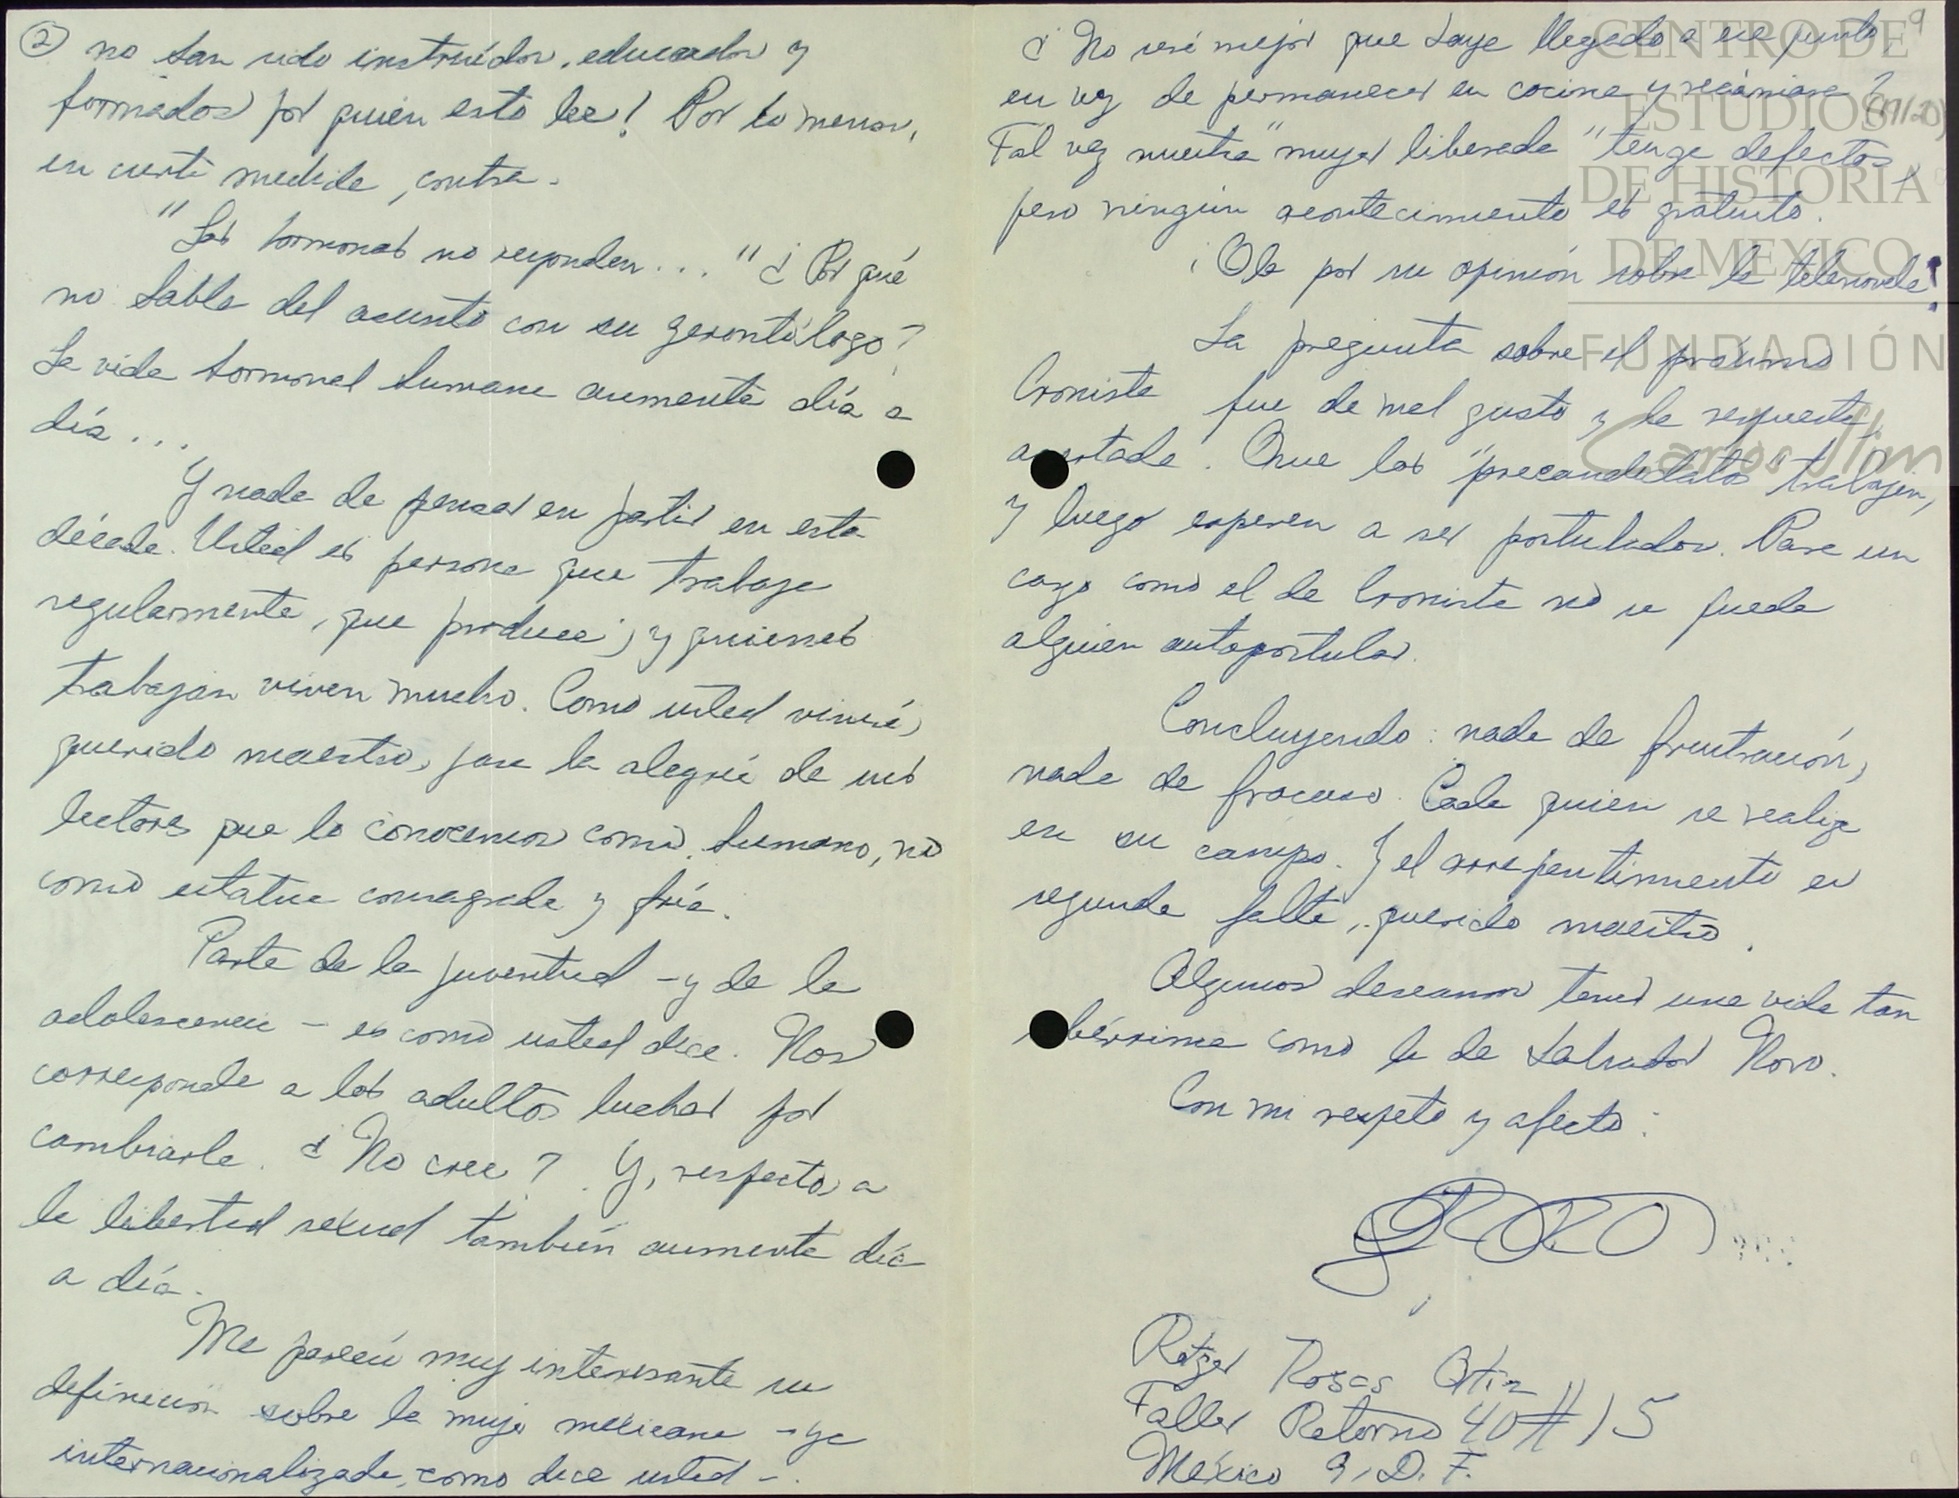 ② no han sido instruídos, educados y
formados por quien esto lee! Por lo menos,
en cierta medida, contra.
"Las hormonas no responden..." ¿Por qué
no habla del asunto con su gerontólogo?
La vida hormonal humana aumenta día a
día...
Y nada de pensar en partir en esta
década. Usted es persona que trabaja
regularmente, que produce; y quienes
trabajan viven mucho. Como usted vivirá,
querido maestro, para la alegría de sus
lectores que lo conocemos como humano, no
como estatua consagrada y fría.
Parte de la juventud - y de la
adolescencia - es como usted dice. Nos
corresponde a los adultos luchar por
cambiarla. ¿No cree? Y, respecto a
la libertad sexual también aumenta día
a día.
Me pareció muy interesante su
definición sobre la mujer mexicana - ya
internacionalizada, como dice usted -.
¿No será mejor que haya llegado a ese punto,
en vez de permanecer en cocina y recámara?
Tal vez nuestra "mujer liberada" tenga defectos,
pero ningún acontecimiento es gratuito.
¡Ole por su opinión sobre la telenovela!
La pregunta sobre el próximo
Cronista fue de mal gusto y la respuesta,
acertada. Que los "precandidatos" trabajen,
y luego esperen a ser postulados. Para un
cargo como el de Cronista no se puede
alguien autopostular.
Concluyendo: nada de frustración,
nada de fracaso. Cada quien se realiza
en su campo. Y el arrepentimiento es
segunda falta, querido maestro.
Algunos deseamos tener una vida tan
ubérrima como la de Salvador Novo.
Con mi respeto y afecto:
Rosas Ortiz
Taller Retorno 40 # 15
México 9, D. F.
9
CENTRO DE
ESTUDIOS
DE HISTORIA
DE MEXICO
FUNDACIÓN
Carlos Slim